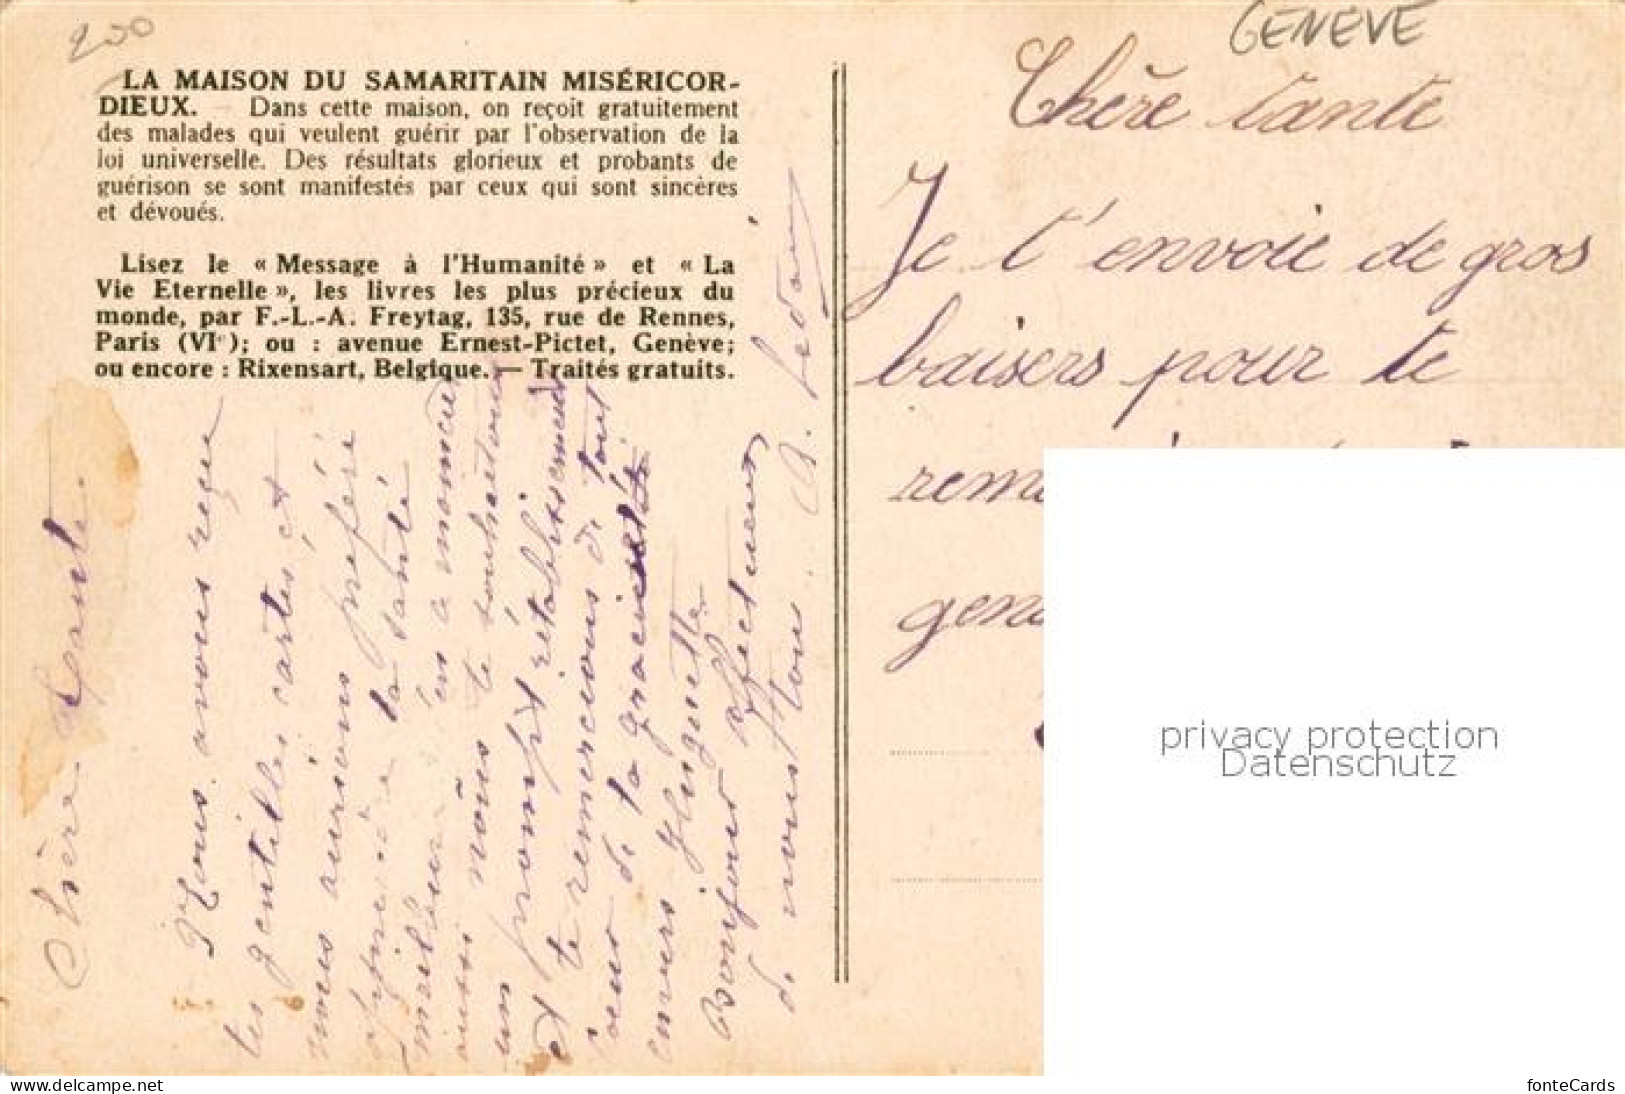 200
GENEVE
LA MAISON DU SAMARITAIN MISÉRICOR-
DIEUX. — Dans cette maison, on reçoit gratuitement
des malades qui veulent guérir par l'observation de la
loi universelle. Des résultats glorieux et probants de
guérison se sont manifestés par ceux qui sont sincères
et dévoués.
Lisez le « Message à l'Humanité » et « La
Vie Eternelle », les livres les plus précieux du
monde, par F.-L.-A. Freytag, 135, rue de Rennes,
Paris (VIe); ou : avenue Ernest-Pictet, Genève;
ou encore : Rixensart, Belgique. — Traités gratuits.
Chère Tante
Nous avons reçu
tes gentilles cartes, et
nous aurions préféré
apprendre ta santé
meilleure
aussi nous te souhaitons
un prompt rétablissement
et te remercions de tout
coeur de ta
envers Huguette
Bonjour affectueux
de nous tous
Chère tante
Je t'envoie de gros
baisers pour te
rem
gen
privacy protection
Datenschutz
www.delcampe.net
fonteCards